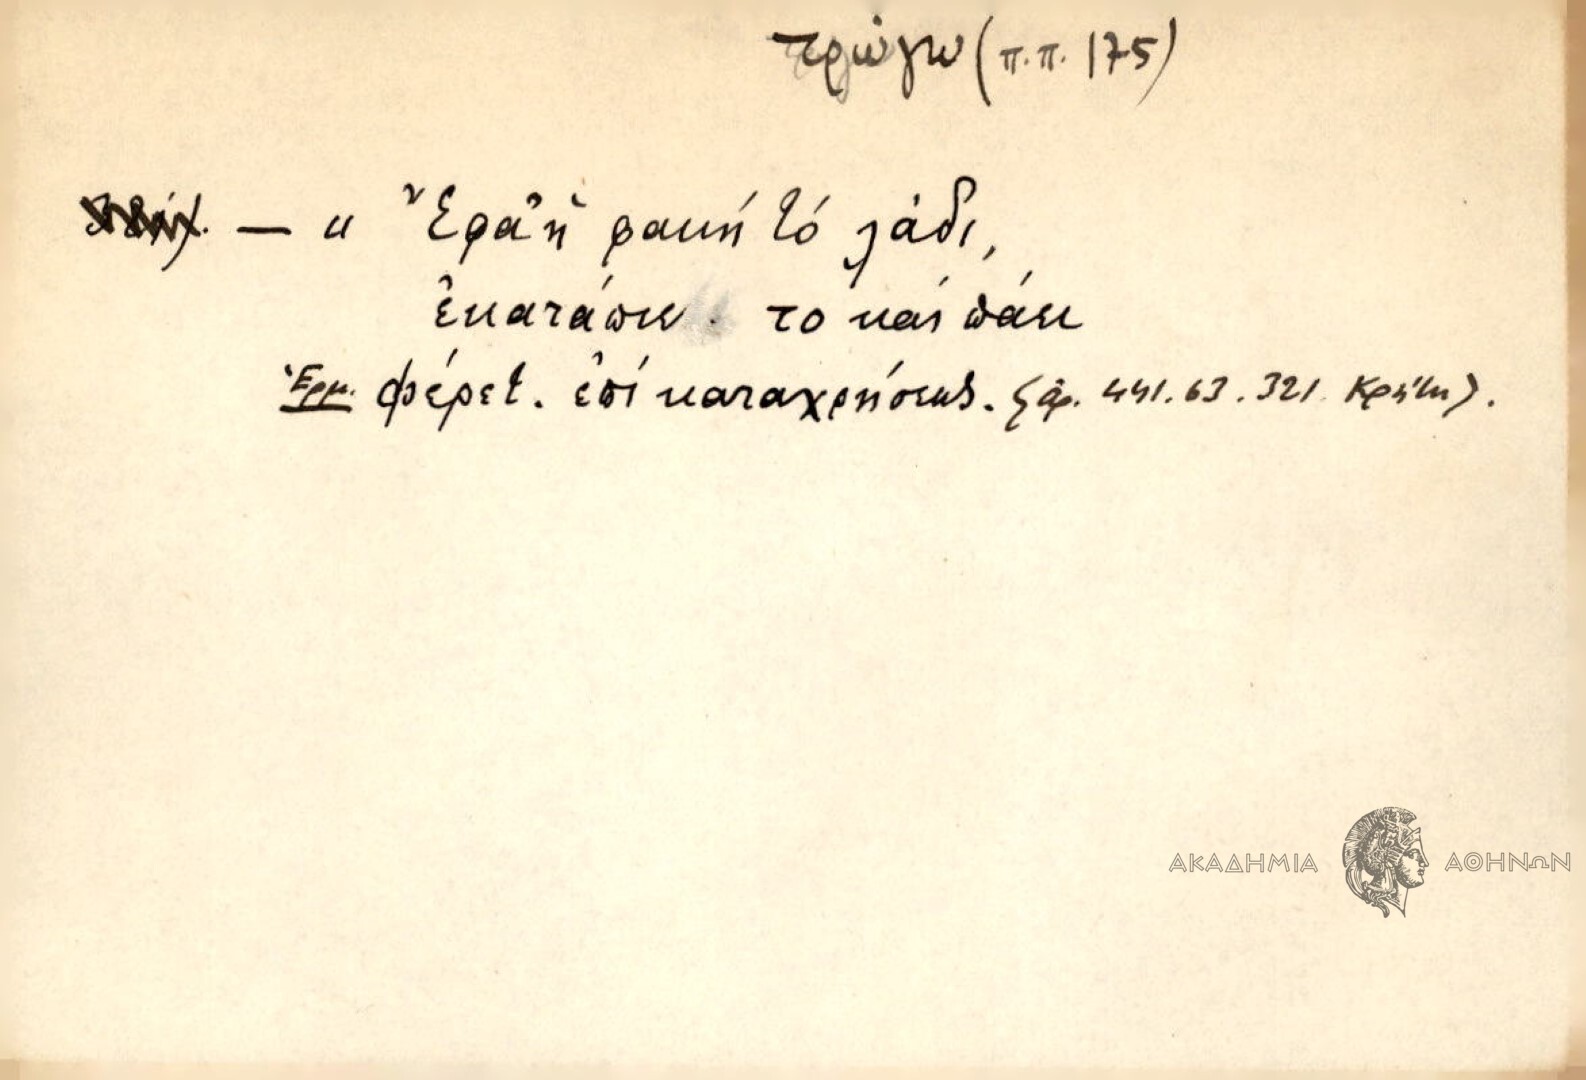 τρώγω (π.π. 175)
— κ Ἔφα' ἡ φακή τό λάδι,
ἐκατάπιε . το καί πάει
Ἑρμ. φέρετ. ἐπί καταχρήσεως. (ἀρ. 441.63.321 Κρήτη).
ΑΚΑΔΗΜΙΑ ΑΘΗΝΩΝ